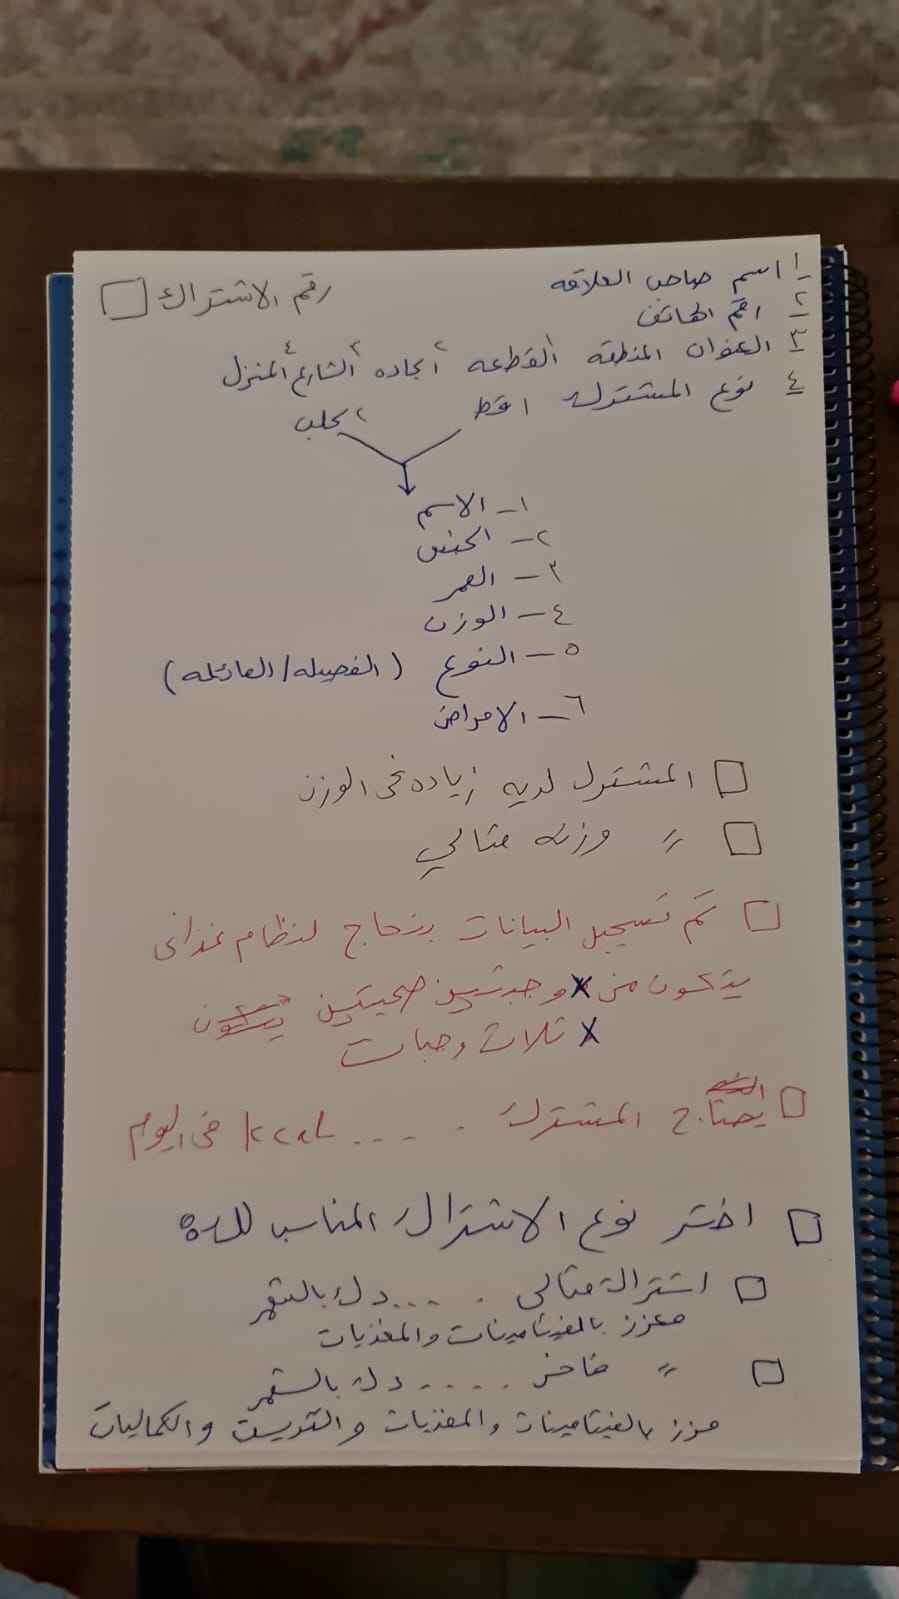 رقم الاشتراك
١ اسم صاحب العلاقه
٢ رقم الهاتف
٣ العنوان المنطقه ١ القطعه ٢ الجاده ٣ الشارع ٤ المنزل
٤ نوع المشترك ١ قط ٢ كلب
١ - الاسم
٢ - الجنس
٣ - العمر
٤ - الوزن
٥ - النوع (الفصيله/العائله)
٦ - الامراض
المشترك لديه زياده في الوزن
〃 وزنه مثالي
تم تسجيل البيانات بنجاح لنظام غذائي
يتكون من x وجبتين صحيتين
x ثلاث وجبات
يحتاج المشترك .... kcal في اليوم
اختر نوع الاشتراك المناسب
اشتراك مثالي .... د.ك بالشهر
معزز بالفيتامينات والمغذيات
〃 فاخر ..... د.ك بالشهر
معزز بالفيتامينات والمغذيات و والكماليات